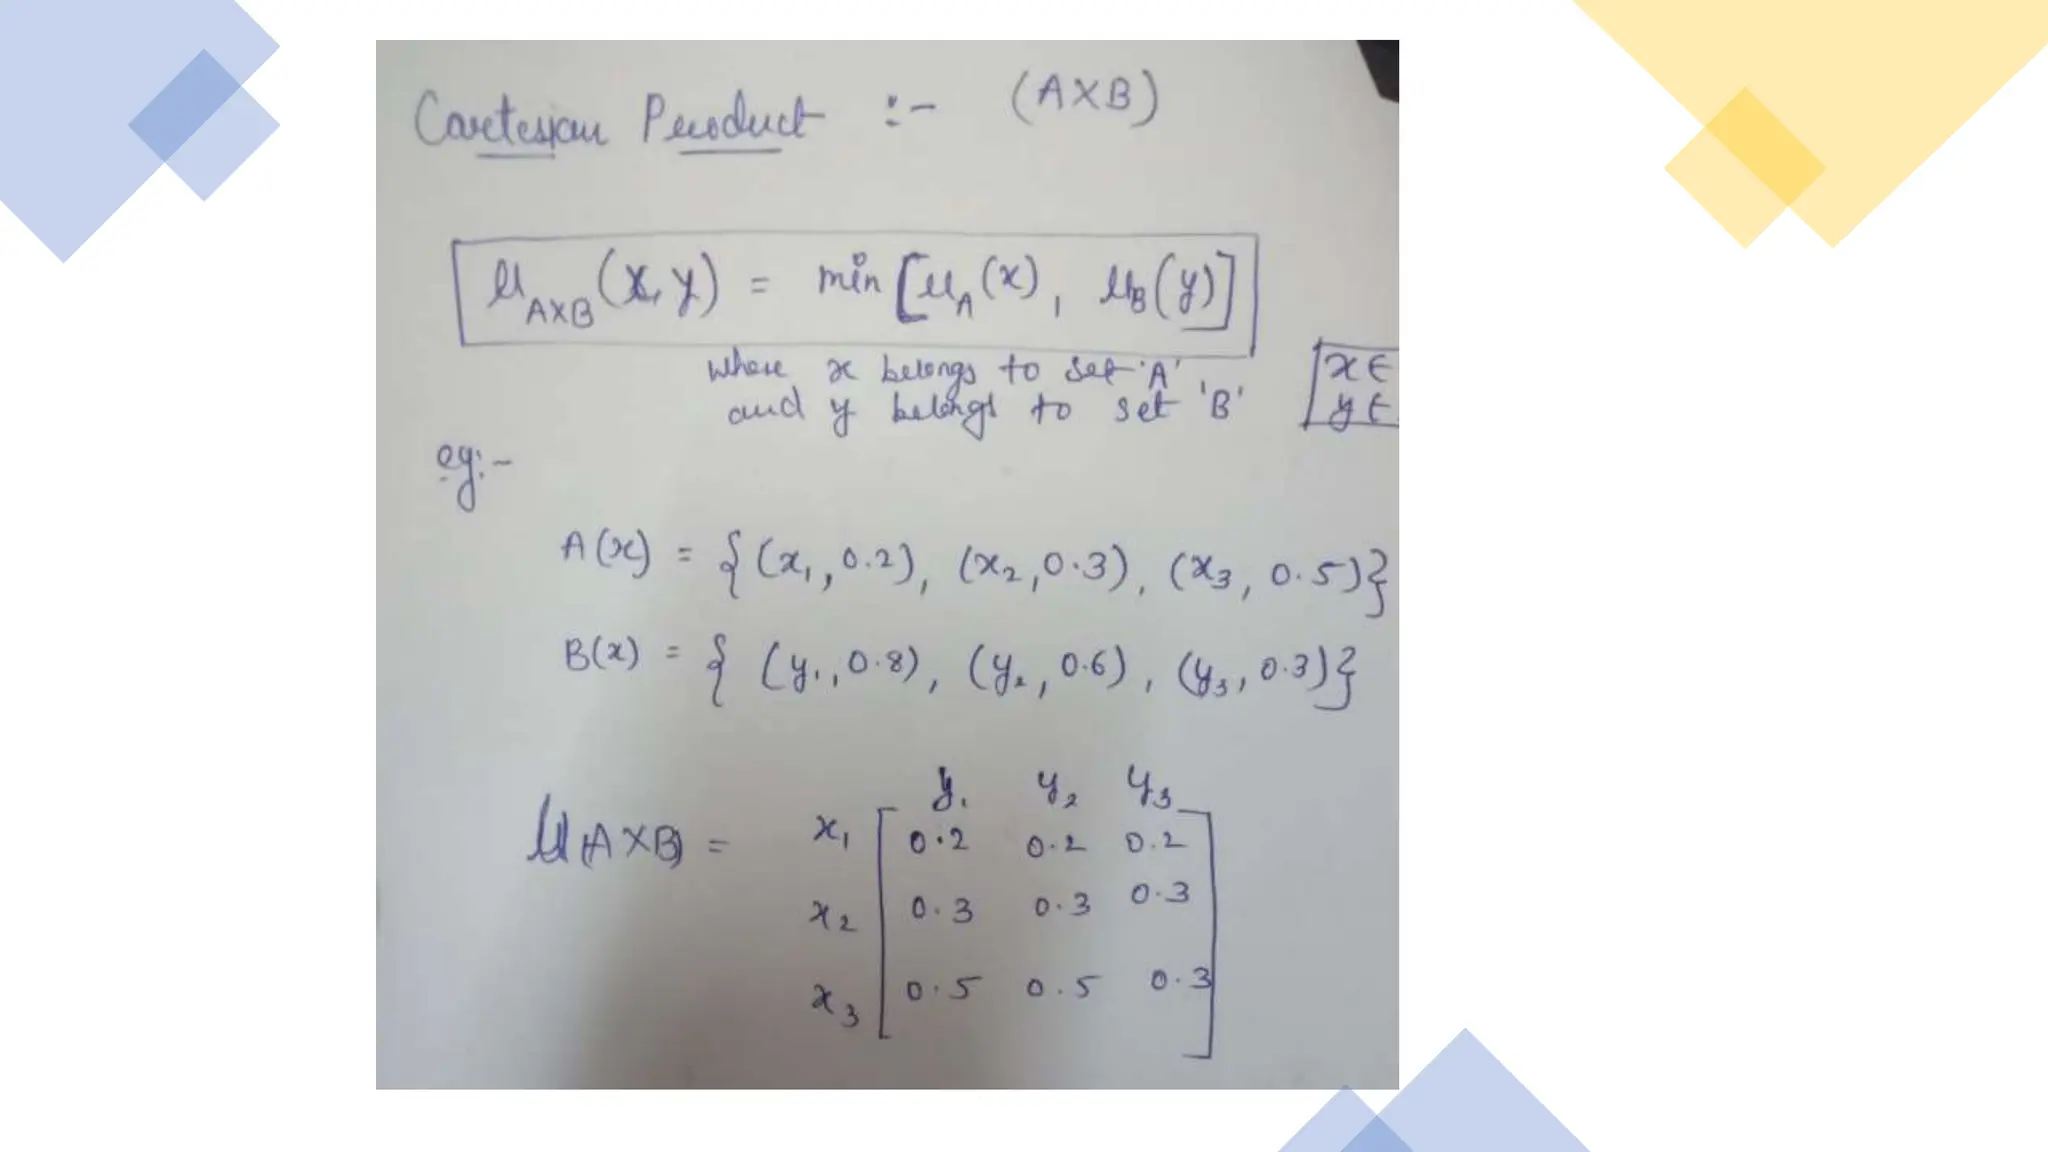 Cartesian Product :- (AXB)
μAXB (x, y) = min [μA (x), μB (y)]
where x belongs to set 'A'
and y belongs to set 'B'
x ∈
y ∈
eg:-
A(x) = {(x1, 0.2), (x2, 0.3), (x3, 0.5)}
B(x) = {(y1, 0.8), (y2, 0.6), (y3, 0.3)}
y1 y2 y3
μ(AXB) = x1 0.2 0.2 0.2
x2 0.3 0.3 0.3
x3 0.5 0.5 0.3